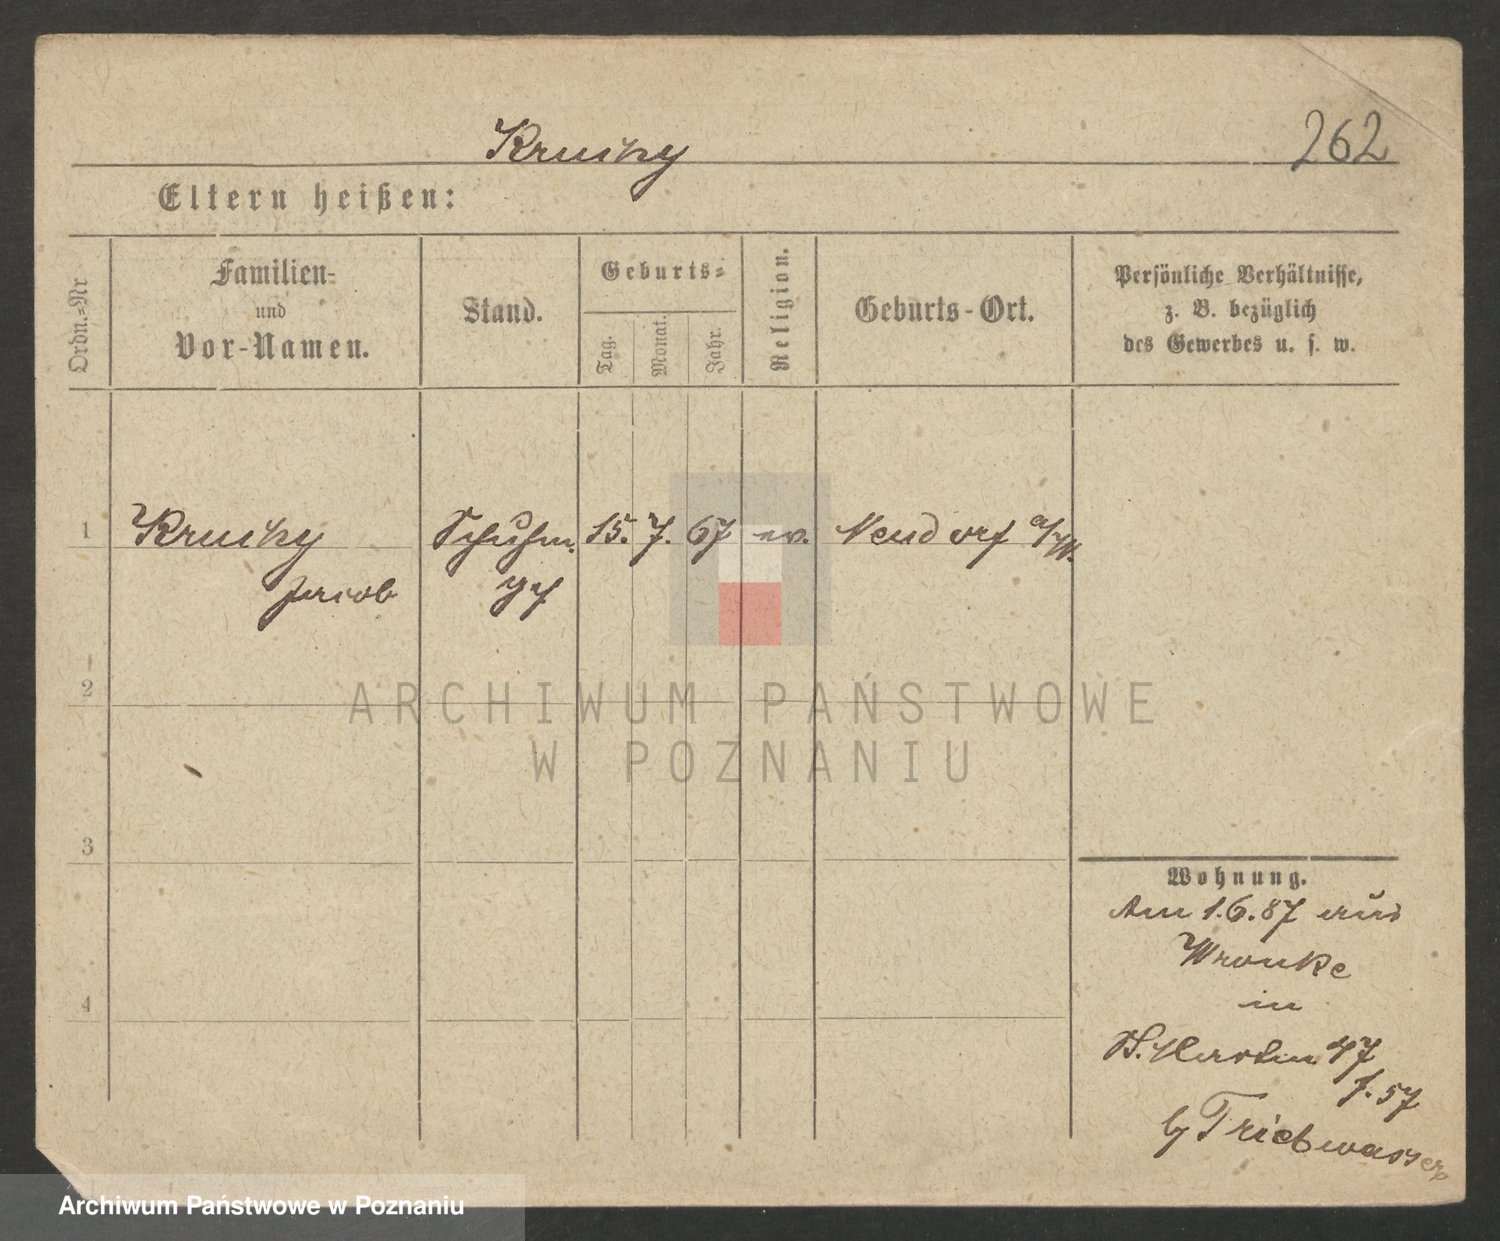 262
Eltern heißen:
Ordn.=Nr
Familien-
und
Vor-Namen.
Stand.
Geburts=
Tag.
Monat.
Jahr.
Religion.
Geburts-Ort.
Persönliche Verhältnisse,
z. B. bezüglich
des Gewerbes u. s. w.
1
Schuhm. 15. 7. 67 ev. Neudorf a/W.
Jacob
2
ARCHIWUM PAŃSTWOWE
W POZNANIU
3
Wohnung.
Am 1.6.87 aus
Wronke
in
4
St. Martin 47
J. 57
b/ Triebwasser
Archiwum Państwowe w Poznaniu